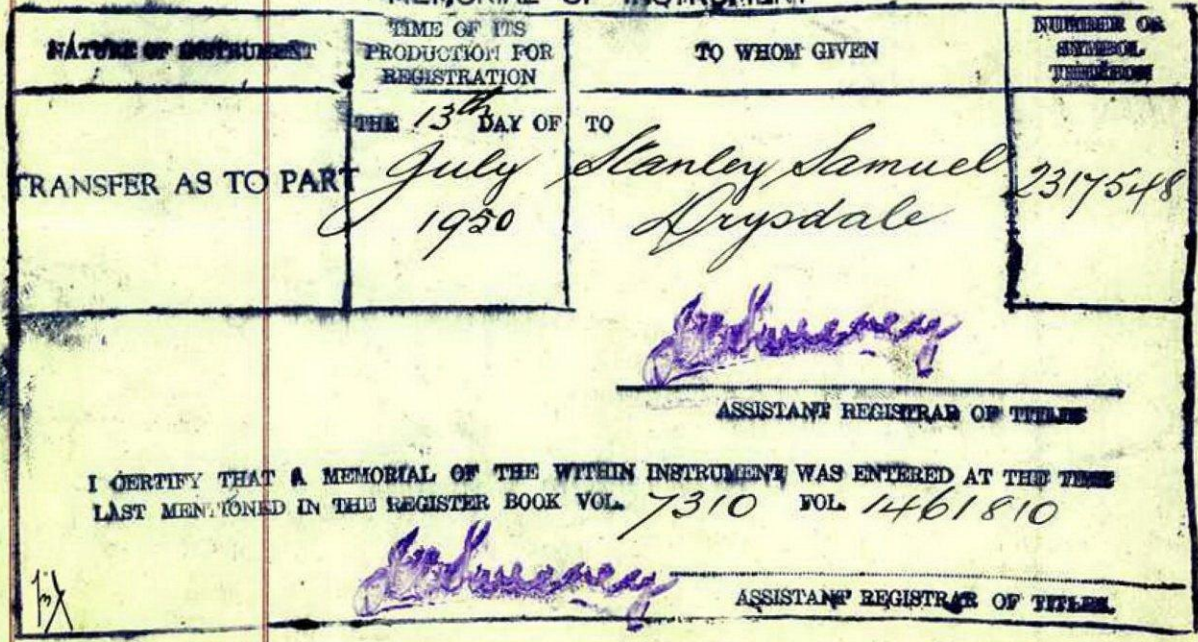 MEMORIAL OF INSTRUMENT
NATURE OF INSTRUMENT
TIME OF ITS
PRODUCTION FOR
REGISTRATION
TO WHOM GIVEN
NUMBER OR
SYMBOL
THEREON
TRANSFER AS TO PART
THE 13th DAY OF
July
1950
TO
Stanley Samuel
Drysdale
2317548
ASSISTANT REGISTRAR OF TITLES
I CERTIFY THAT A MEMORIAL OF THE WITHIN INSTRUMENT WAS ENTERED AT THE TIME
LAST MENTIONED IN THE REGISTER BOOK VOL. 7310 FOL. 1461810
ASSISTANT REGISTRAR OF TITLES.